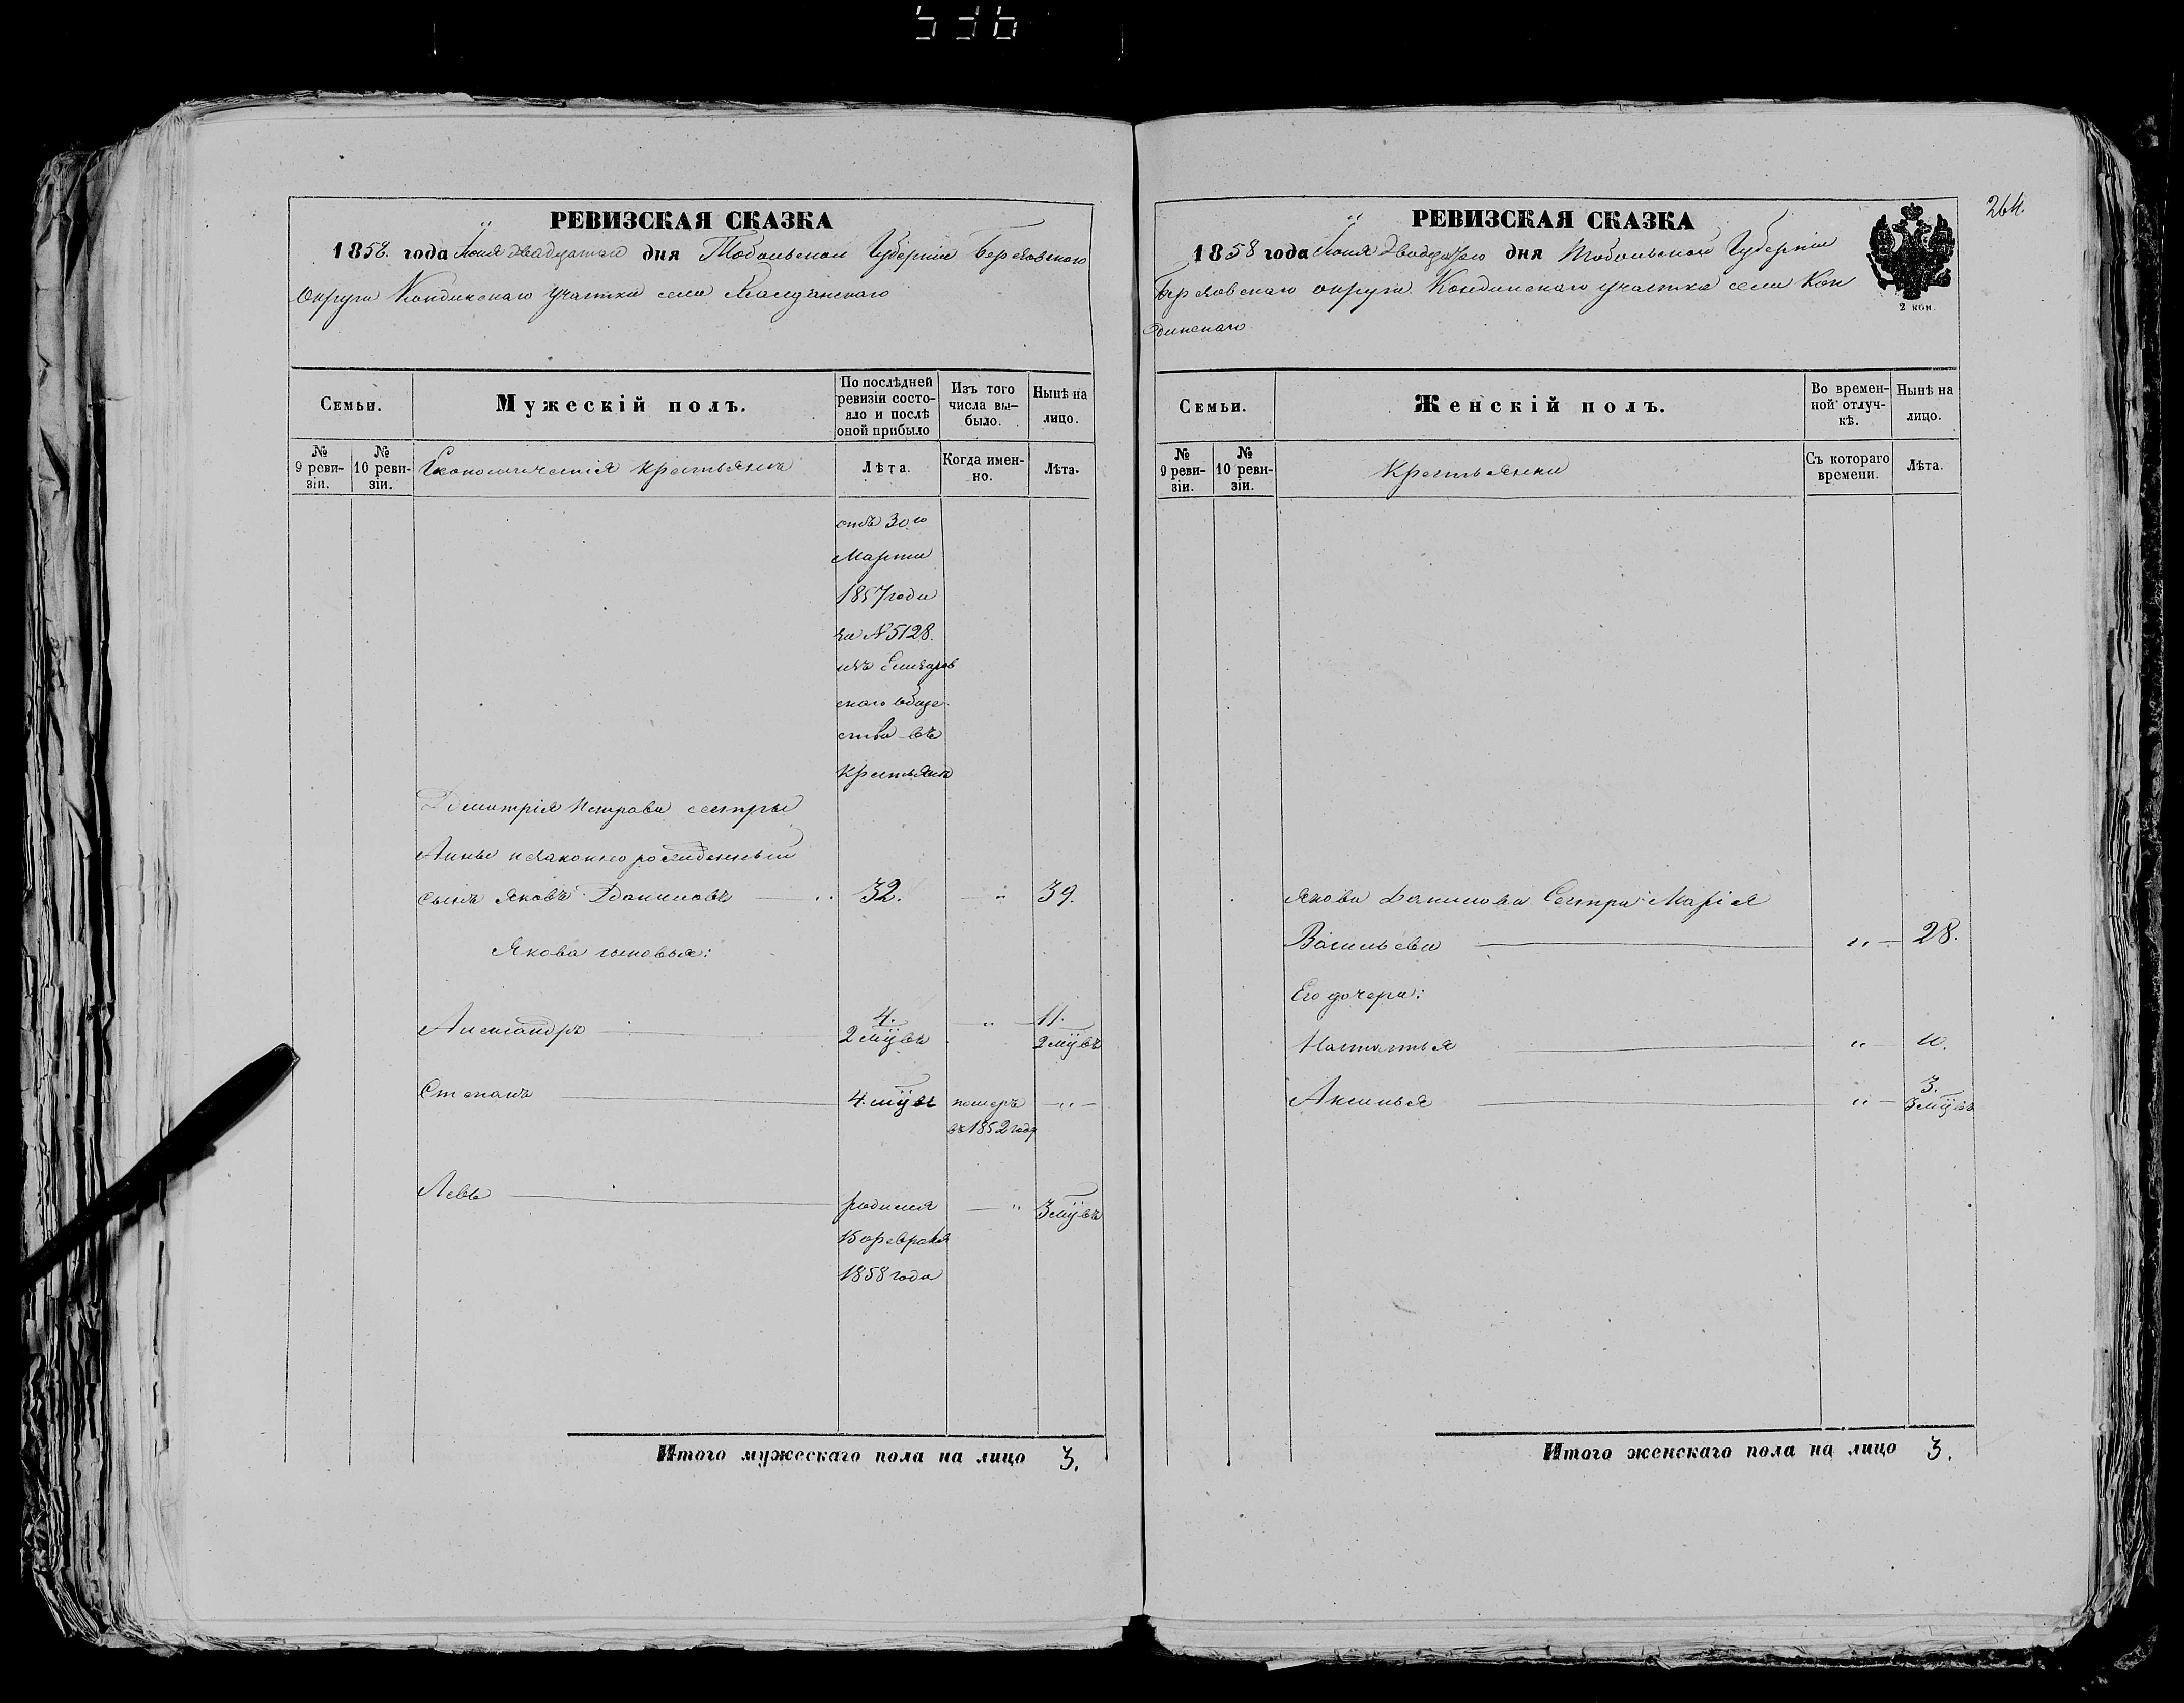 536
РЕВИЗСКАЯ СКАЗКА
1858. года Іюня двадцатаго дня Тобольской Губерніи Березовскаго
Округа Кондинскаго участка села
Семьи.
Мужескій полъ.
По послѣдней ревизіи состояло и послѣ оной прибыло
Изъ того числа выбыло.
Нынѣ на лицо.
№ 9 ревизіи.
№ 10 ревизіи.
Экономическія крестьяне
Лѣта.
Когда именно.
Лѣта.
отъ 30го
Марта
1857 года
за №5128.
изъ
скаго обще
ства въ
Крестьяне
Димитрія Петрова сестры
Анны незаконнорожденный
сынъ Яковъ Даниловъ 32. " 39.
Якова сыновья:
Александръ 4. 2 мцвъ " 11. 2 мцвъ
Степанъ 4. мцвъ померъ въ 1852 году "
Левъ родился 15 февраля 1858 года " 3 мцвъ
Итого мужескаго пола на лицо 3.
264.
РЕВИЗСКАЯ СКАЗКА
1858 года Іюня двадцатаго дня Тобольской Губерніи
Березовскаго округа Кондинскаго участка села Кон
динскаго
2 коп.
Семьи.
Женскій полъ.
Во временной отлучкѣ.
Нынѣ на лицо.
№ 9 ревизіи.
№ 10 ревизіи.
Крестьянки
Съ котораго времени.
Лѣта.
Якова Данилова Сестра Марія
Васильева " 28.
Его дочери:
Настасья "
Аксинья " 3. 3 мцвъ
Итого женскаго пола на лицо 3.